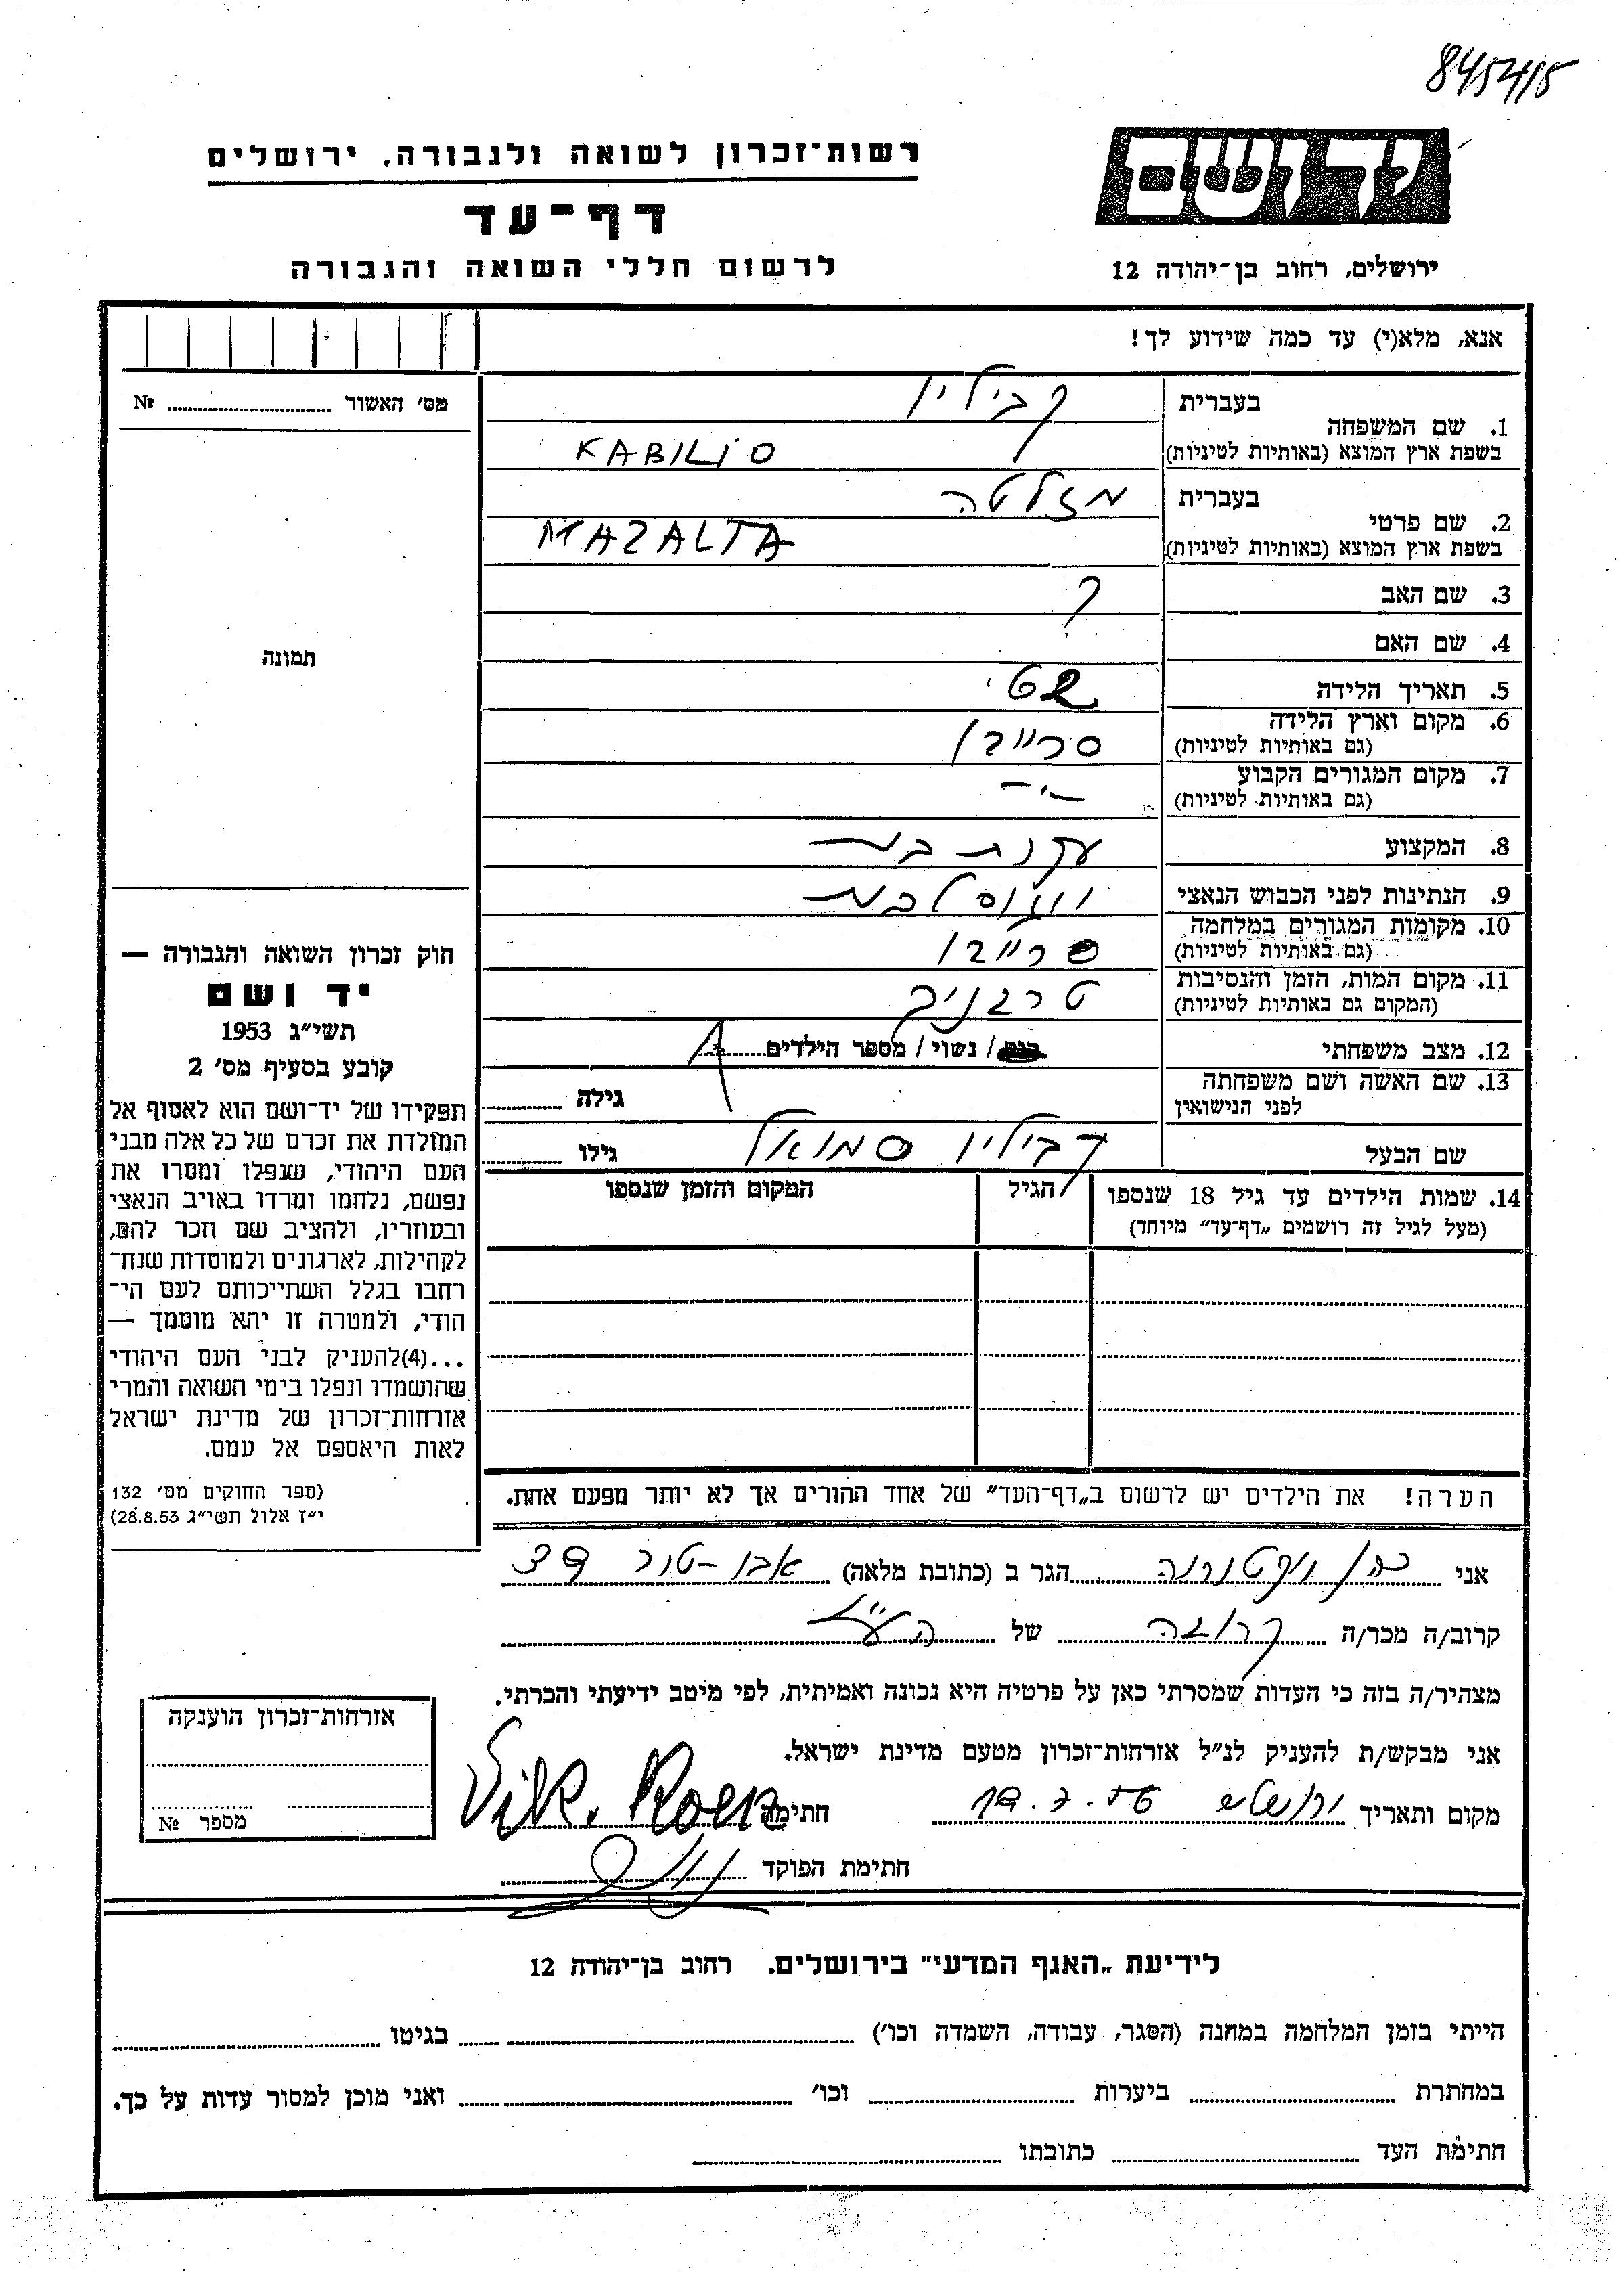 845415
יד ושם
רשות־זכרון לשואה ולגבורה, ירושלים
דף־עד
לרשום חללי השואה והגבורה
ירושלים, רחוב בן־יהודה 12
אנא, מלא(י) עד כמה שידוע לך!
מס׳ האשור № ..........
1. שם המשפחה
בעברית קבילין
בשפת ארץ המוצא (באותיות לטיניות) KABILIO
2. שם פרטי
בעברית מזלטה
בשפת ארץ המוצא (באותיות לטיניות) MAZALTA
3. שם האב ?
4. שם האם
5. תאריך הלידה
6. מקום וארץ הלידה
(גם באותיות לטיניות) סרייבו
7. מקום המגורים הקבוע
(גם באותיות לטיניות) -״-
8. המקצוע עקרת בית
9. הנתינות לפני הכבוש הנאצי יוגוסלבית
10. מקומות המגורים במלחמה
(גם באותיות לטיניות) סרייבו
11. מקום המות, הזמן והנסיבות
(המקום גם באותיות לטיניות)
12. מצב משפחתי / נשוי / מספר הילדים
13. שם האשה ושם משפחתה
לפני הנישואין גילה ..........
שם הבעל קביליו סמואל גילו ..........
14. שמות הילדים עד גיל 18 שנספו
(מעל לגיל זה רושמים „דף־עד״ מיוחד)
הגיל
המקום והזמן שנספו
הערה! את הילדים יש לרשום ב„דף־העד״ של אחד ההורים אך לא יותר מפעם אחת.
תמונה
חוק זכרון השואה והגבורה —
יד ושם
תשי״ג 1953
קובע בסעיף מס׳ 2
תפקידו של יד־ושם הוא לאסוף אל
המולדת את זכרם של כל אלה מבני
העם היהודי, שנפלו ומסרו את
נפשם, נלחמו ומרדו באויב הנאצי
ובעוזריו, ולהציב שם וזכר להם,
לקהילות, לארגונים ולמוסדות שנח־
רבו בגלל השתייכותם לעם הי־
הודי, ולמטרה זו יהא מוסמך —
...(4)להעניק לבני העם היהודי
שהושמדו ונפלו בימי השואה והמרי
אזרחות־זכרון של מדינת ישראל
לאות היאספם אל עמם.
(ספר החוקים מס׳ 132
י״ז אלול תשי״ג 28.8.53)
אני כהן ויקטוריה הגר ב (כתובת מלאה) אבו-טור
קרוב/ה מכר/ה קרובה של
מצהיר/ה בזה כי העדות שמסרתי כאן על פרטיה היא נכונה ואמיתית, לפי מיטב ידיעתי והכרתי.
אני מבקש/ת להעניק לנ״ל אזרחות־זכרון מטעם מדינת ישראל.
מקום ותאריך ירושלים 19.7.56 חתימה Vik. Koen
חתימת הפוקד
אזרחות־זכרון הוענקה
מספר №
לידיעת „האגף המדעי״ בירושלים. רחוב בן־יהודה 12
הייתי בזמן המלחמה במחנה (הסגר, עבודה, השמדה וכו׳) .......... בגיטו ..........
במחתרת .......... ביערות .......... וכו׳ .......... ואני מוכן למסור עדות על כך.
חתימת העד .......... כתובתו ..........